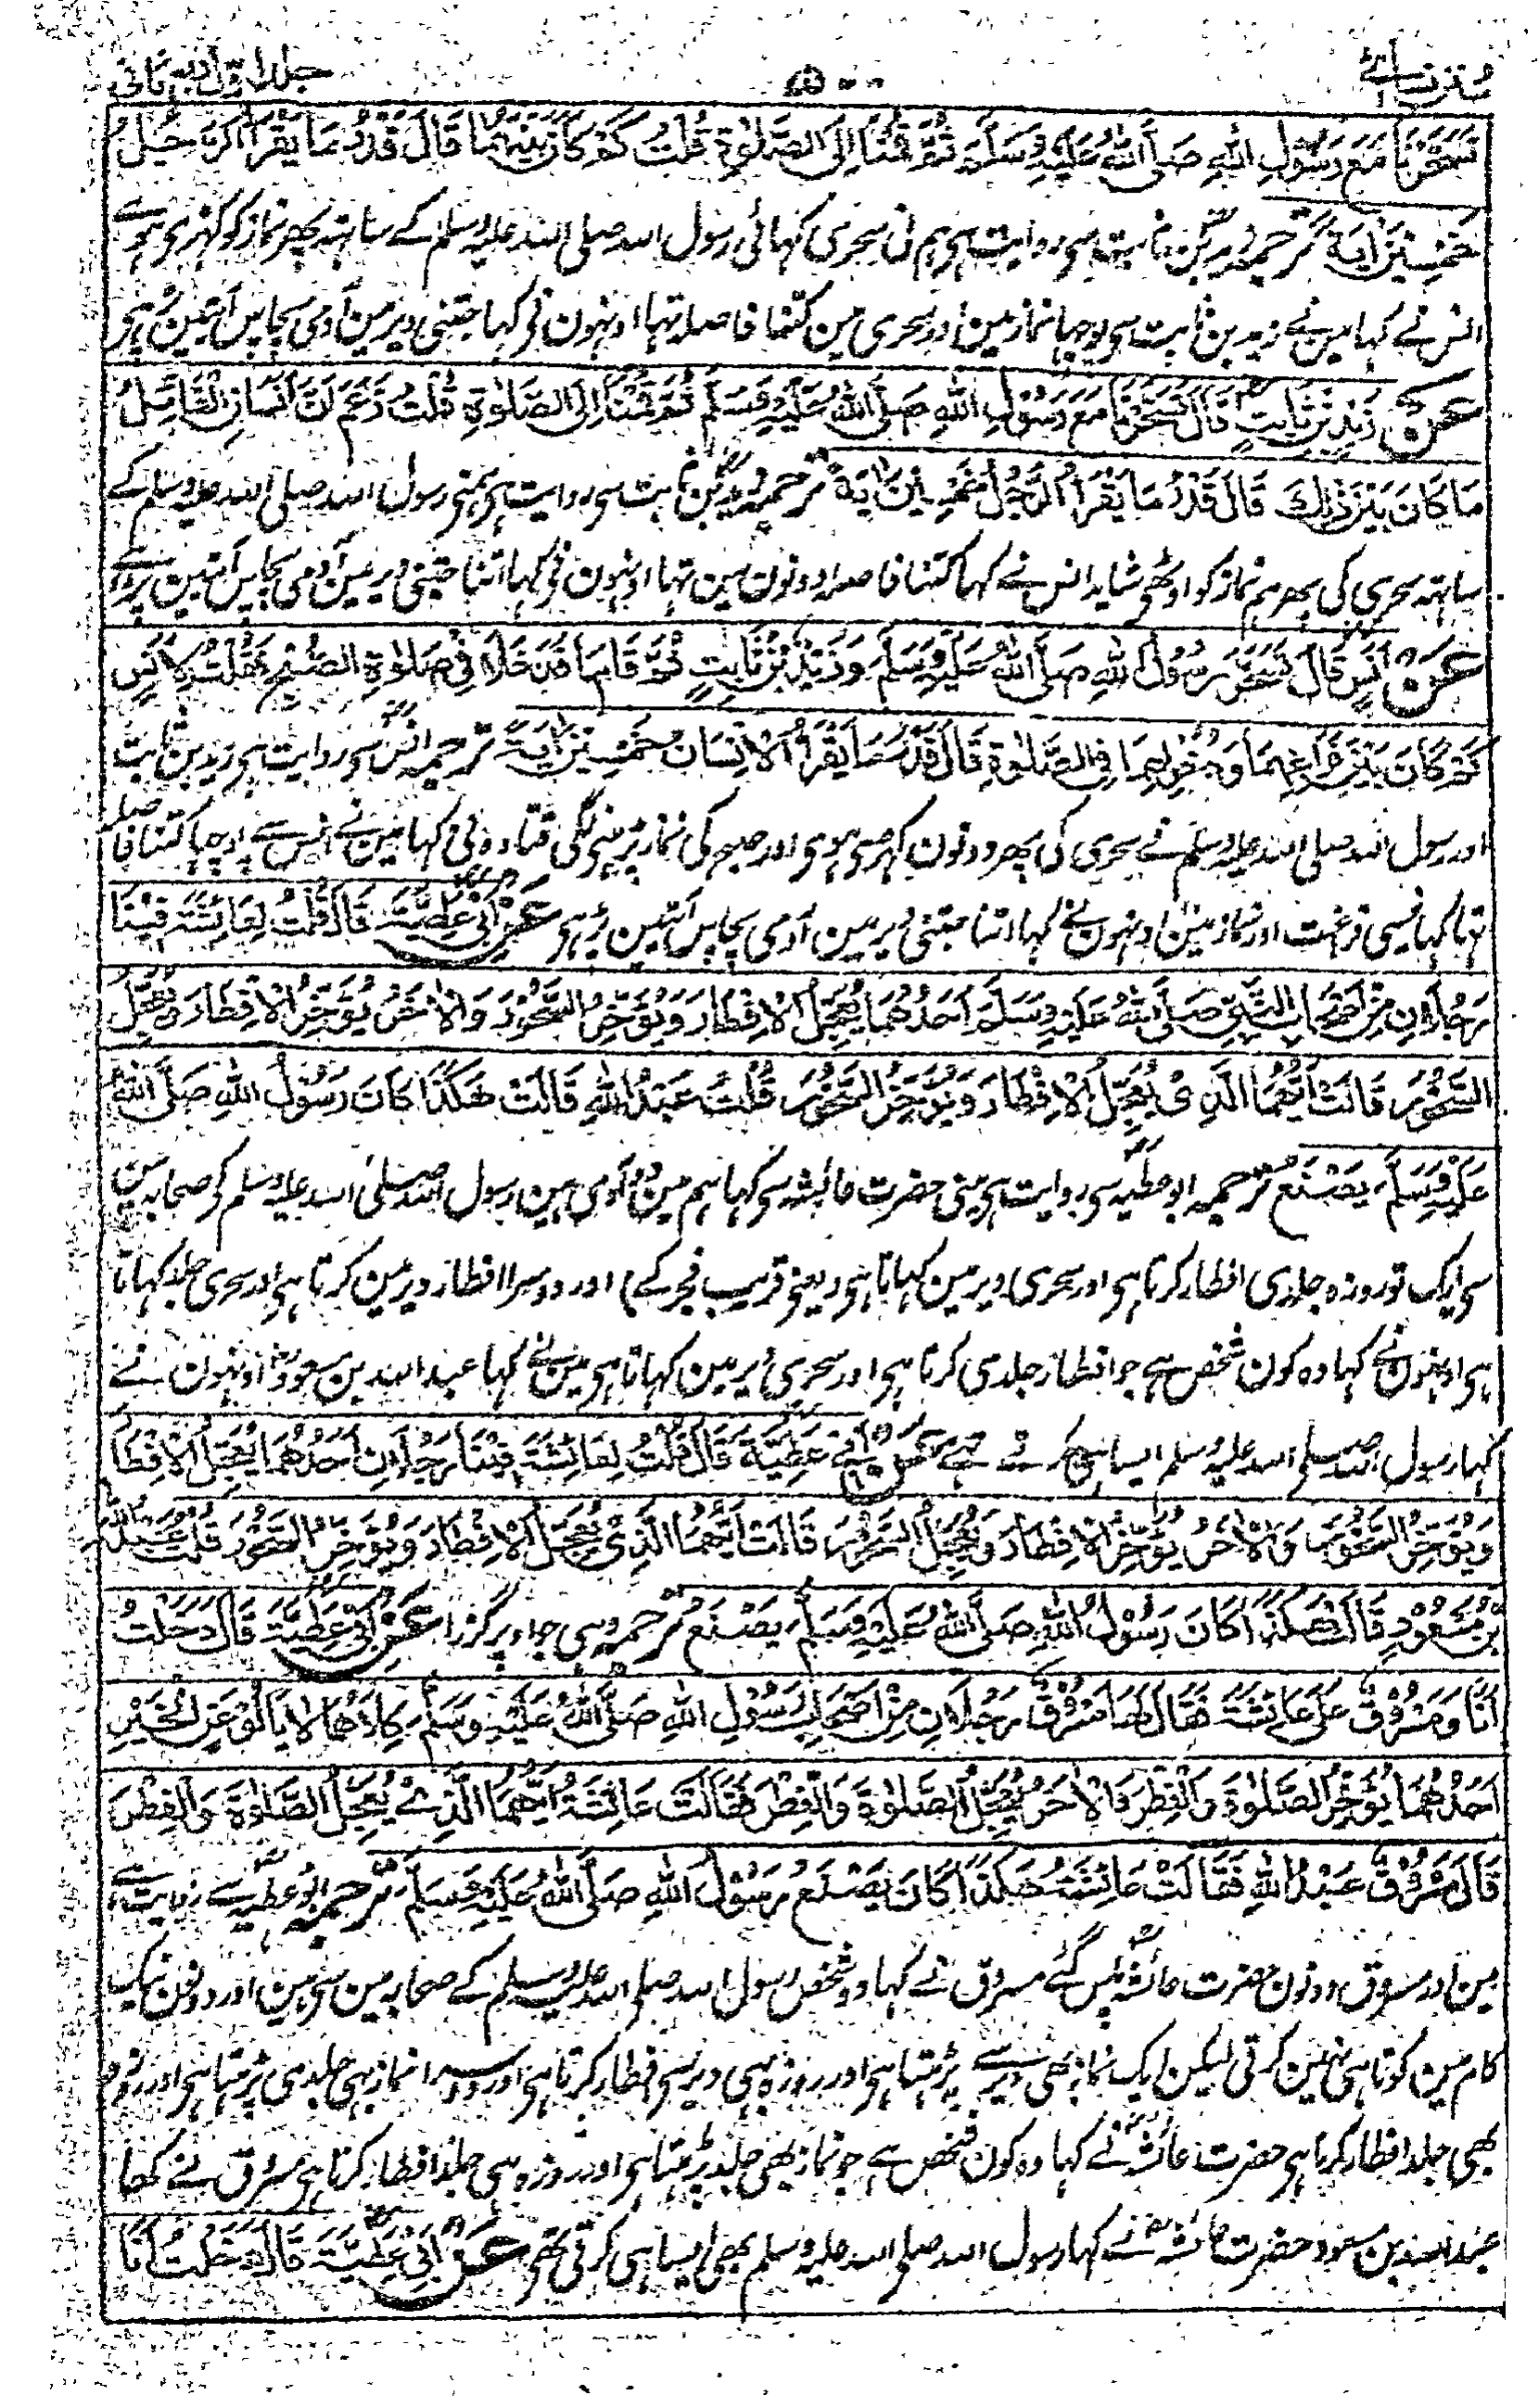 سنن نسائے
جلد اول ربع ثانی
تَسَحَّرْنَا مَعَ رَسُوْلِ اللّٰهِ صَلَّى اللّٰهُ عَلَيْهِ وَسَلَّمَ ثُمَّ قُمْنَا اِلَى الصَّلٰوةِ قُلْتُ كَمْ كَانَ بَيْنَهُمَا قَالَ قَدْرُ مَا يَقْرَأُ الرَّجُلُ
خَمْسِيْنَ اٰيَةً ترجمہ زید بن ثابت سی روایت ہی ہم نی سحری کہائی رسول اللہ صلی اللہ علیہ وسلم کے ساتہہ پھر نماز کو کہڑی ہوے
انس نے کہا مین نے زید بن ثابت سی پوچہا نماز مین اور سحری مین کتنا فاصلہ تہا اونہون نی کہا جتنی دیر مین آدمی پچاس آیتین پڑہی
عَنْ زَيْدِ بْنِ ثَابِتٍ قَالَ تَسَحَّرْنَا مَعَ رَسُوْلِ اللّٰهِ صَلَّى اللّٰهُ عَلَيْهِ وَسَلَّمَ ثُمَّ قُمْنَا اِلَى الصَّلٰوةِ قُلْتُ زُعِمَ اَنَّ اَنَسًا نِ الْقَائِلُ
مَا كَانَ بَيْنَ ذٰلِكَ قَالَ قَدْرُ مَا يَقْرَأُ الرَّجُلُ خَمْسِيْنَ اٰيَةً ترجمہ زید بن ثابت سی روایت ہی ہمنی رسول اللہ صلی اللہ علیہ وسلم کے
ساتہہ سحری کی پھر ہم نماز کو اوٹھی شاید انس نے کہا کتنا فاصلہ دونون مین تہا اونہون نی کہا اتنا جتنی دیر مین آدمی پچاس آیتین پڑہے
عَنْ اَنَسٍ قَالَ تَسَحَّرَ رَسُوْلُ اللّٰهِ صَلَّى اللّٰهُ عَلَيْهِ وَسَلَّمَ وَزَيْدُ بْنُ ثَابِتٍ ثُمَّ قَامَا فَدَخَلَا فِيْ صَلٰوةِ الصُّبْحِ فَقُلْتُ لِاَنَسٍ
كَمْ كَانَ بَيْنَ فَرَاغِهِمَا وَدُخُوْلِهِمَا فِى الصَّلٰوةِ قَالَ قَدْرُ مَا يَقْرَأُ الْاِنْسَانُ خَمْسِيْنَ اٰيَةً ترجمہ انس سی روایت ہی زید بن ثابت
اور رسول اللہ صلی اللہ علیہ وسلم نے سحری کی پھر دونون کہڑی ہوی اور صبح کی نماز پڑہنی لگی قتادہ نی کہا مین نے انس سے پوچہا کتنا فاصلہ
تہا کہانیسی فراغت اور نماز مین اونہون نے کہا اتنا جتنی دیر مین آدمی پچاس آیتین پڑہی عَنْ اَبِيْ عَطِيَّةَ قَالَ قُلْتُ لِعَائِشَةَ فِيْنَا
رَجُلَانِ مِنْ اَصْحَابِ النَّبِيِّ صَلَّى اللّٰهُ عَلَيْهِ وَسَلَّمَ اَحَدُهُمَا يُعَجِّلُ الْاِفْطَارَ وَيُؤَخِّرُ السَّحُوْرَ وَالْاٰخَرُ يُؤَخِّرُ الْاِفْطَارَ وَيُعَجِّلُ
السَّحُوْرَ قَالَتْ اَيُّهُمَا الَّذِىْ يُعَجِّلُ الْاِفْطَارَ وَيُؤَخِّرُ السَّحُوْرَ قُلْتُ عَبْدُ اللّٰهِ قَالَتْ هٰكَذَا كَانَ رَسُوْلُ اللّٰهِ صَلَّى اللّٰهُ
عَلَيْهِ وَسَلَّمَ يَصْنَعُ ترجمہ ابو عطیہ سی روایت ہی مینی حضرت عائشہ سی کہا ہم مین دو آدمی ہین رسول اللہ صلی اللہ علیہ وسلم کی صحابہ مین
سی ایک تو روزہ جلدی افطار کرتا ہی اور سحری دیر مین کہاتا ہی (یعنی قریب فجر کے) اور دوسرا افطار دیر مین کرتا ہی اور سحری جلد کہاتا
ہی اونہون نے کہا وہ کون شخص ہے جو افطار جلدی کرتا ہی اور سحری دیر مین کہاتا ہی مین نے کہا عبد اللہ بن مسعود اونہون نے
کہا رسول اللہ صلی اللہ علیہ وسلم ایسا ہی کرتے تہے عَنْ اَبِيْ عَطِيَّةَ قَالَ قُلْتُ لِعَائِشَةَ فِيْنَا رَجُلَانِ اَحَدُهُمَا يُعَجِّلُ الْاِفْطَارَ
وَيُؤَخِّرُ السَّحُوْرَ وَالْاٰخَرُ يُؤَخِّرُ الْاِفْطَارَ وَيُعَجِّلُ السَّحُوْرَ قَالَتْ اَيُّهُمَا الَّذِىْ يُعَجِّلُ الْاِفْطَارَ وَيُؤَخِّرُ السَّحُوْرَ قُلْتُ عَبْدُ اللّٰهِ
بْنُ مَسْعُوْدٍ قَالَتْ هٰكَذَا كَانَ رَسُوْلُ اللّٰهِ صَلَّى اللّٰهُ عَلَيْهِ وَسَلَّمَ يَصْنَعُ ترجمہ وہی جو اوپر گزرا عَنْ اَبِيْ عَطِيَّةَ قَالَ دَخَلْتُ
اَنَا وَمَسْرُوْقٌ عَلٰى عَائِشَةَ فَقَالَ لَهَا مَسْرُوْقٌ رَجُلَانِ مِنْ اَصْحَابِ رَسُوْلِ اللّٰهِ صَلَّى اللّٰهُ عَلَيْهِ وَسَلَّمَ كِلَاهُمَا لَا يَاْلُوْ عَنِ الْخَيْرِ
اَحَدُهُمَا يُؤَخِّرُ الصَّلٰوةَ وَالْفِطْرَ وَالْاٰخَرُ يُعَجِّلُ الصَّلٰوةَ وَالْفِطْرَ فَقَالَتْ عَائِشَةُ اَيُّهُمَا الَّذِىْ يُعَجِّلُ الصَّلٰوةَ وَالْفِطْرَ
قَالَ مَسْرُوْقٌ عَبْدُ اللّٰهِ فَقَالَتْ عَائِشَةُ هٰكَذَا كَانَ يَصْنَعُ رَسُوْلُ اللّٰهِ صَلَّى اللّٰهُ عَلَيْهِ وَسَلَّمَ ترجمہ ابو عطیہ سے روایت ہے
مین اور مسروق دونون حضرت عائشہ پاس گئے مسروق نے کہا دو شخص رسول اللہ صلی اللہ علیہ وسلم کے صحابہ مین سی ہین اور دونون نیک
کام مین کوتاہی نہین کرتی لیکن ایک نماز بھی دیر سے پڑہتا ہی اور روزہ بہی دیر سی افطار کرتا ہی اور دوسرا نماز بہی جلدی پڑہتا ہی اور روزہ
بھی جلد افطار کرتا ہی حضرت عائشہ نے کہا وہ کون شخص ہے جو نماز بھی جلد پڑہتا ہی اور روزہ بہی جلد افطار کرتا ہی مسروق نے کھا
عبد اللہ بن مسعود حضرت عائشہ نے کہا رسول اللہ صلی اللہ علیہ وسلم بھی ایسا ہی کرتی تھی عَنْ اَبِيْ عَطِيَّةَ قَالَ دَخَلْتُ اَنَا